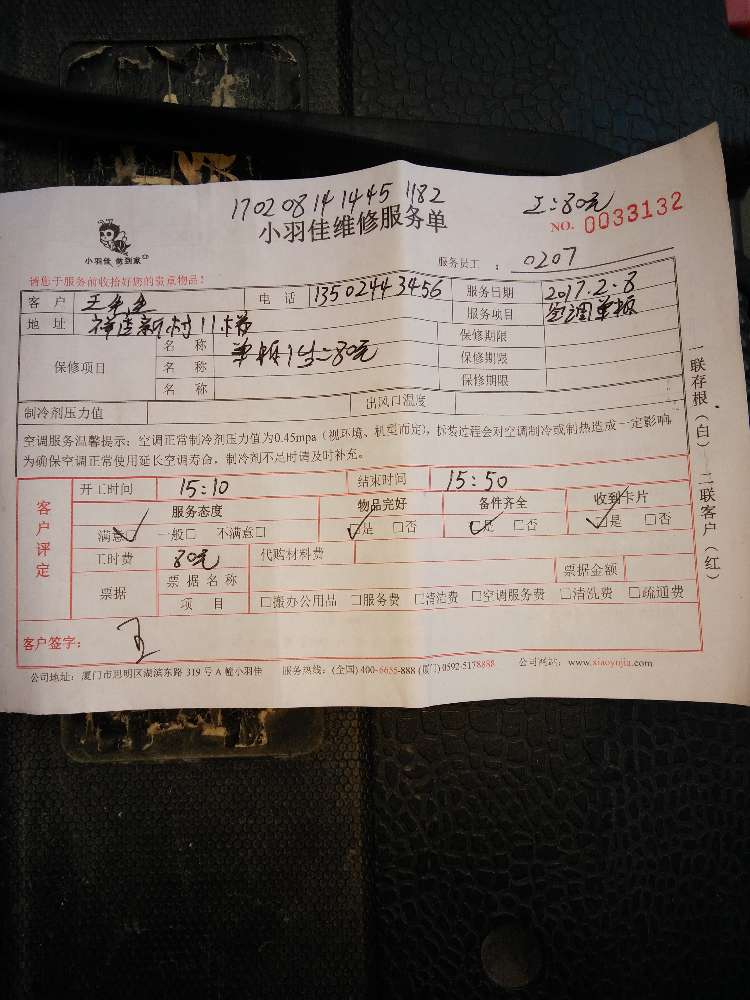 17020814 1445 1182
工:80元
小羽佳维修服务单
NO. 0033132
小羽佳 做到家
服务员工 : 0207
请您于服务前收拾好您的贵重物品!
客 户 王先生 电 话 13502443456 服务日期 2017.2.8
地 址 新村11栋 服务项目 空调单拆
保修项目 名 称 单拆1台:80元 保修期限
名 称 保修期限
名 称 保修期限
制冷剂压力值 出风口温度
空调服务温馨提示:空调正常制冷剂压力值为0.45mpa(视环境、机型而定),拆装过程会对空调制冷或制热造成一定影响
为确保空调正常使用延长空调寿命,制冷剂不足时请及时补充。
客户评定
开工时间 15:10 结束时间 15:50
服务态度 物品完好 备件齐全 收到卡片
满意□ 一般□ 不满意□ □是 □否 □是 □否 □是 □否
工时费 80元 代购材料费
票据 票据名称 票据金额
项 目 □搬办公用品 □服务费 □清洁费 □空调服务费 □清洗费 □疏通费
客户签字: 王
公司地址:厦门市思明区湖滨东路 319 号 A 幢小羽佳 服务热线:(全国) 400-6655-888 (厦门) 0592-5178888 公司网站:www.xiaoyujia.com
一联存根(白) 二联客户(红)